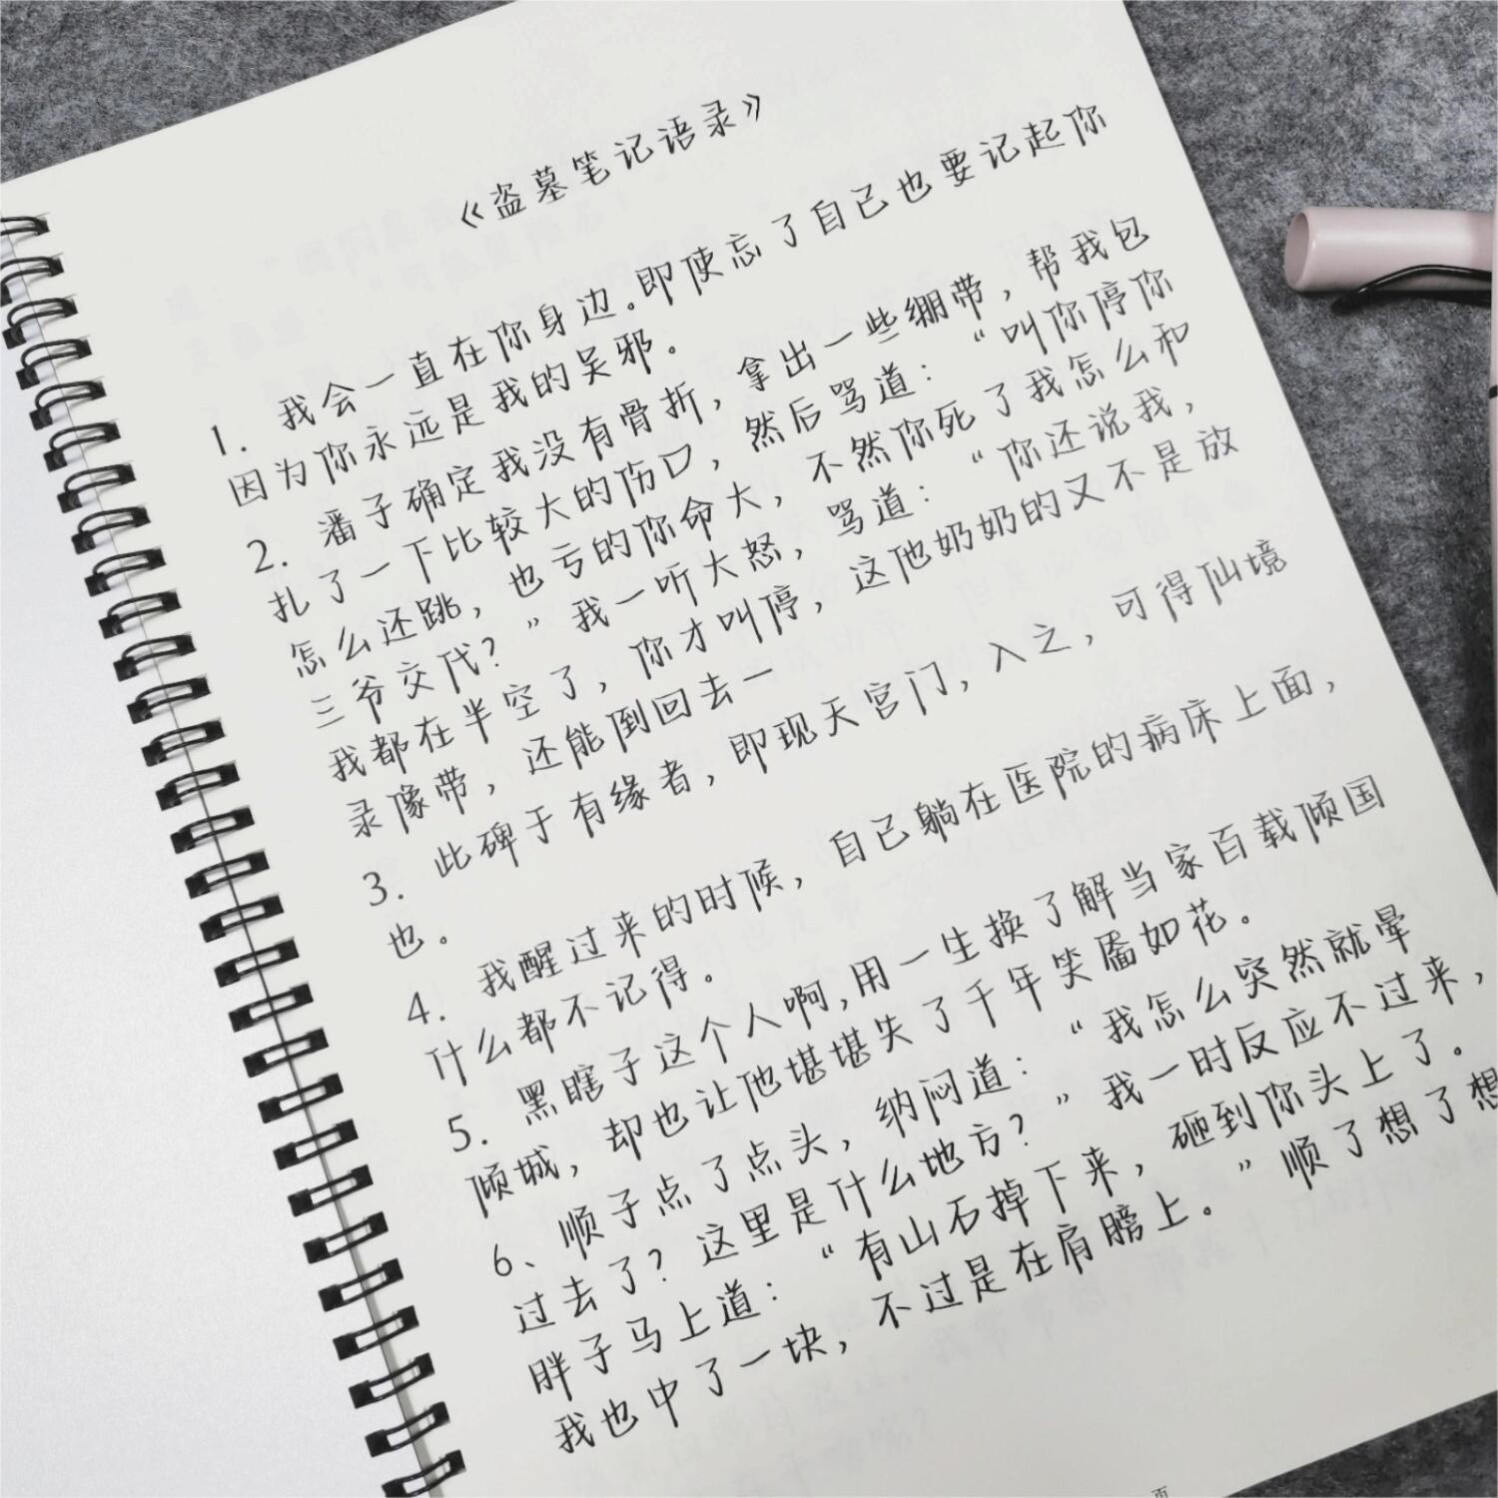 《盗墓笔记语录》
1. 我会一直在你身边。即使忘了自己也要记起你
因为你永远是我的吴邪。
2. 潘子确定我没有骨折，拿出一些绷带，帮我包
扎了一下比较大的伤口，然后骂道：“叫你停你
怎么还跳，也亏的你命大，不然你死了我怎么和
三爷交代？”我一听大怒，骂道：“你还说我，
我都在半空了，你才叫停，这他奶奶的又不是放
录像带，还能倒回去一
3. 此碑于有缘者，即现天宫门，入之，可得仙境
也。
4. 我醒过来的时候，自己躺在医院的病床上面，
什么都不记得。
5. 黑瞎子这个人啊,用一生换了解当家百载倾国
倾城，却也让他堪堪失了千年笑靥如花。
6、顺子点了点头，纳闷道：“我怎么突然就晕
过去了？这里是什么地方？”我一时反应不过来，
胖子马上道：“有山石掉下来，砸到你头上了。
我也中了一块，不过是在肩膀上。”顺了想了想
页